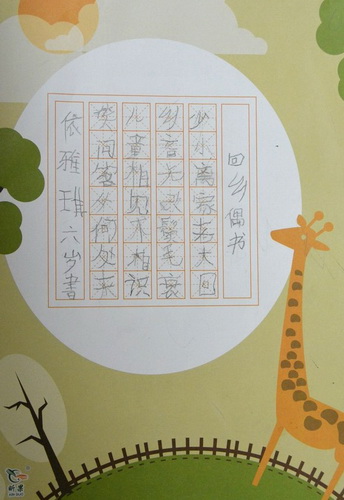 回乡偶书
少小离家老大回
乡音无改鬓毛衰
儿童相见不相识
笑问客从何处来
依雅琪六岁书